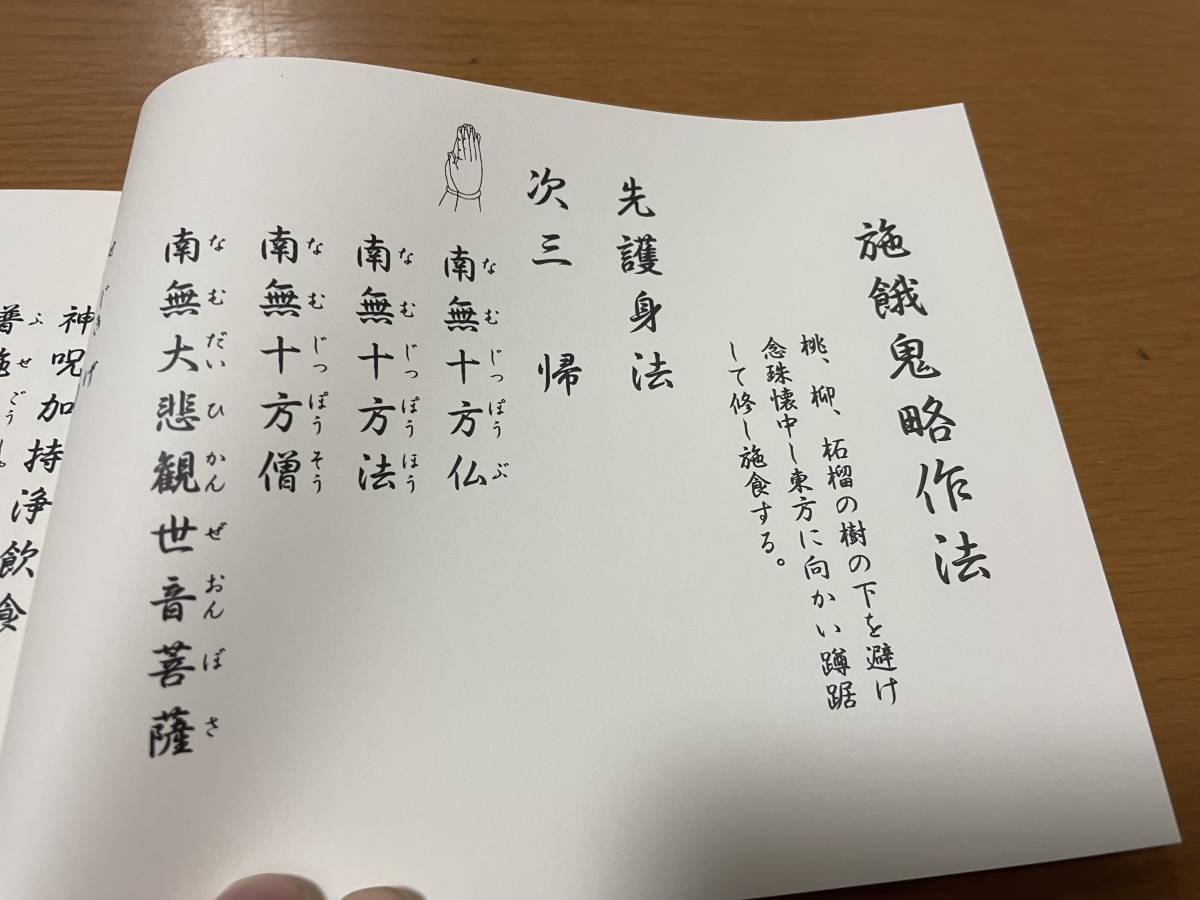 施餓鬼略作法
桃、柳、柘榴の樹の下を避け
念珠懐中し東方に向かい蹲踞
して修し施食する。
先護身法
次三帰
南無十方仏
なむじっぽうぶ
南無十方法
なむじっぽうほう
南無十方僧
なむじっぽうそう
南無大悲観世音菩薩
なむだいひかんぜおんぼさ
神呪加持浄飲食
普施
ふせごう